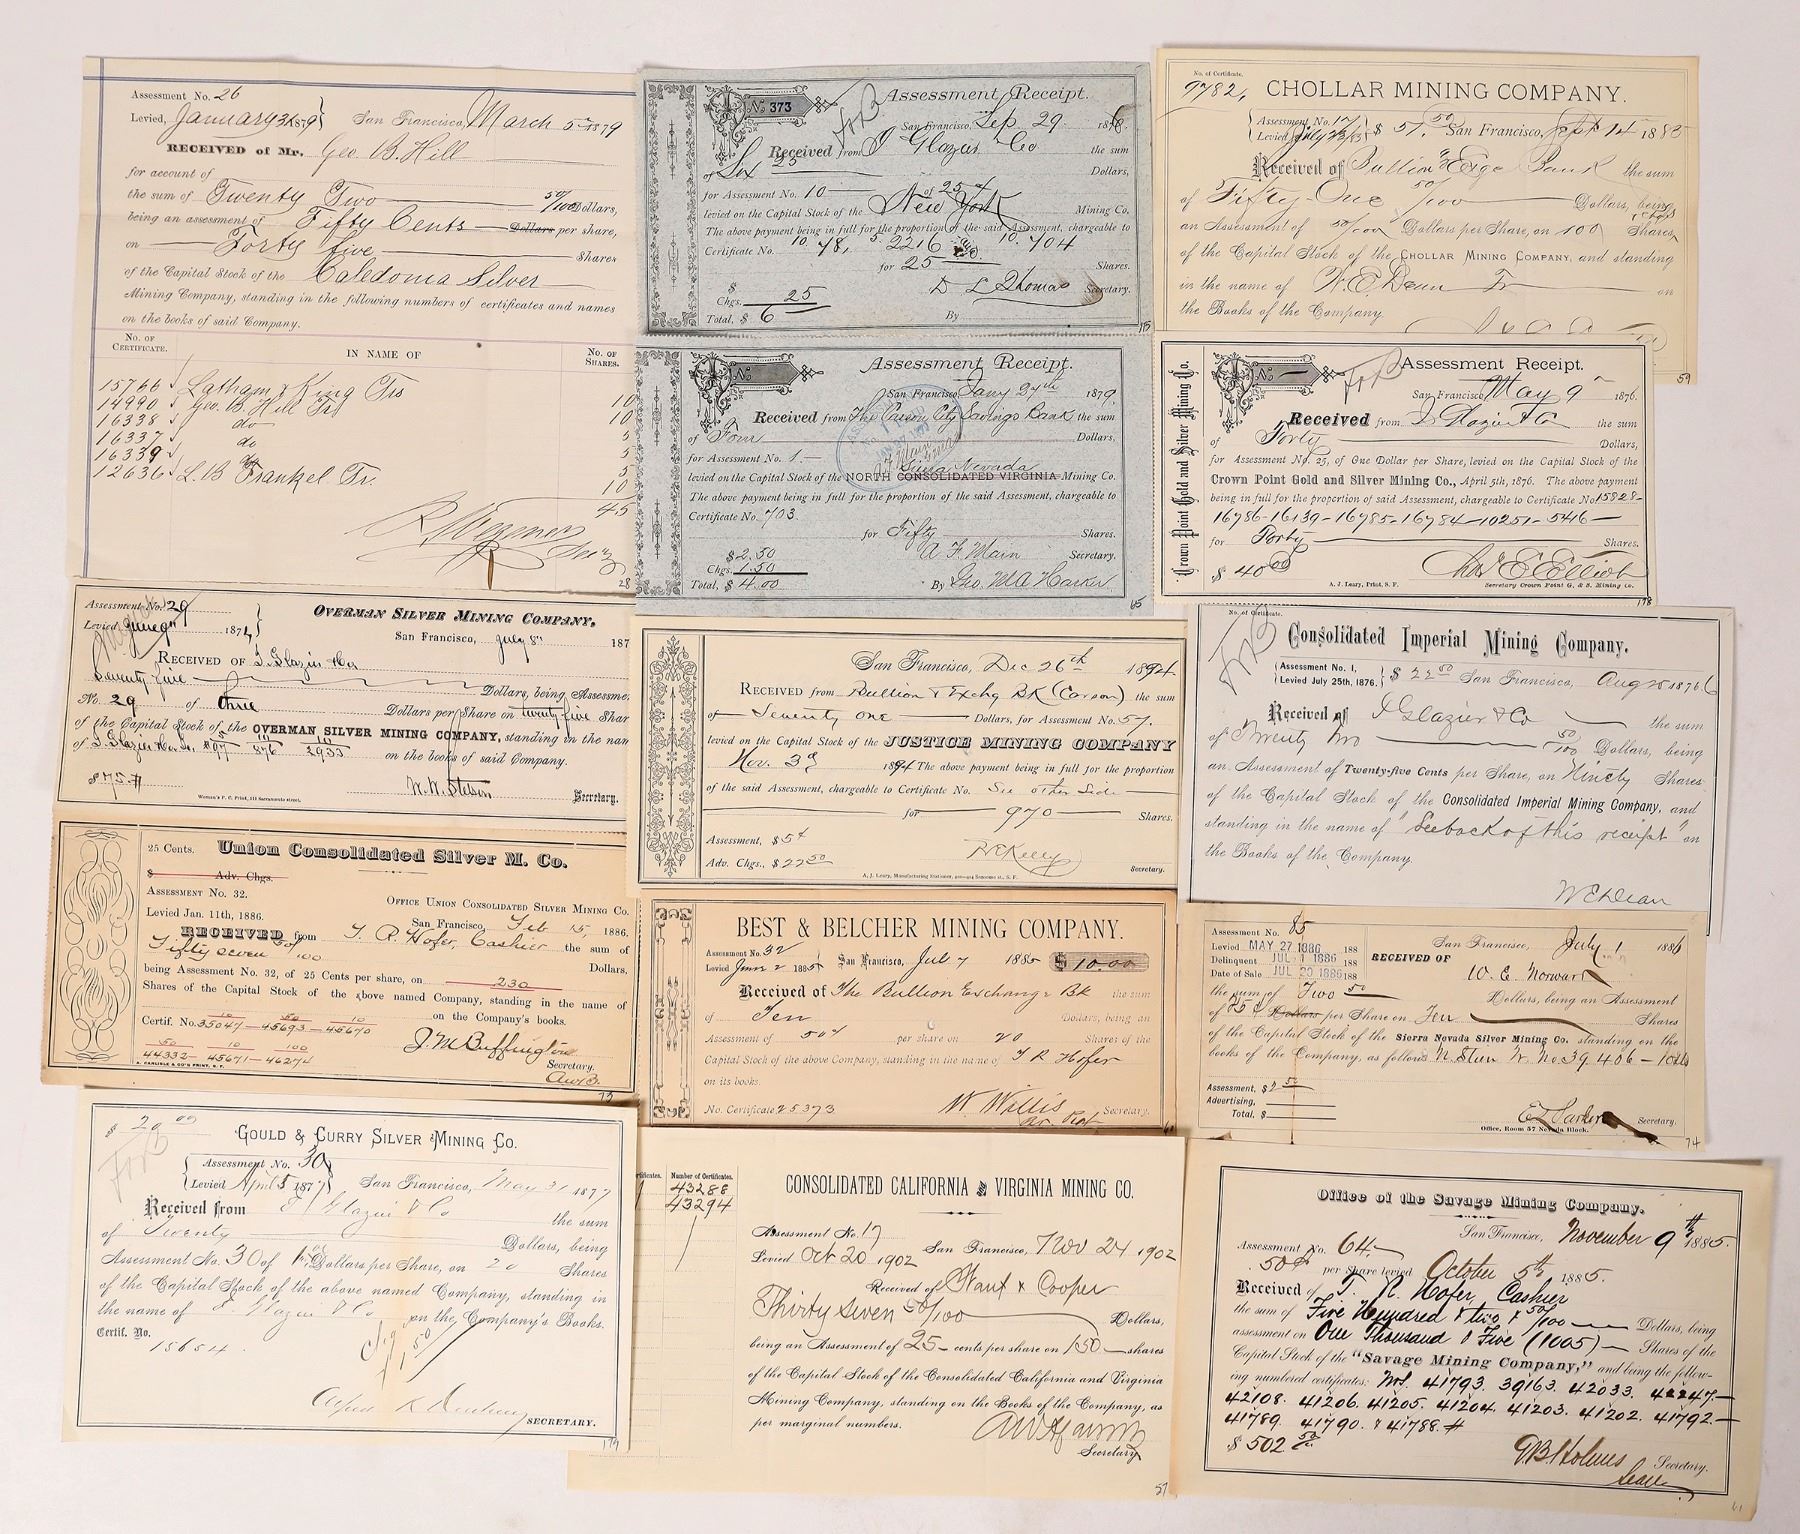 Assessment No. 26
Levied, January 31 1879 } San Francisco, March 5th 1879
RECEIVED of Mr. Geo B. Hill
for account of
the sum of Twenty Two 50/100 Dollars,
being an assessment of Fifty Cents Dollars per share,
on Forty five Shares
of the Capital Stock of the Caledonia Silver
Mining Company, standing in the following numbers of certificates and names
on the books of said Company.
NO. OF CERTIFICATE. IN NAME OF NO. OF SHARES.
15766 Latham & King Trs 10
14990 Geo. B. Hill Trs 10
16338 do 5
16337 do 5
16339 do 5
12636 L. B Frankel Tr. 10
45
28
No 373 Assessment Receipt.
San Francisco, Sep 29 187
Received from I Glazier & Co the sum
of Six 25 Dollars,
for Assessment No. 10 of 25 ¢
levied on the Capital Stock of the New York Mining Co.
The above payment being in full for the proportion of the said Assessment, chargeable to
Certificate No. 10. 781, 5. 2216 10. 704
for 25 Shares.
$
Chgs. 25 D L Thomas Secretary.
Total, $ 6 By
No. of Certificate.
9782, CHOLLAR MINING COMPANY.
Assessment No.
Levied $ 51.50 San Francisco, Sept 14 188
Received of Bullion & Exge Bank the sum
of Fifty-One 50/100 Dollars, being
an Assessment of 50/100 Dollars per Share, on 100 Shares
of the Capital Stock of the CHOLLAR MINING COMPANY, and standing
in the name of W. E. Dean Tr on
the Books of the Company.
59
No Assessment Receipt.
San Francisco Jany 27th 1879.
Received from The Carson City Savings Bank the sum
of Four Dollars.
for Assessment No. 1.
Sierra Nevada
levied on the Capital Stock of the NORTH CONSOLIDATED VIRGINIA Mining Co.
The above payment being in full for the proportion of the said Assessment, chargeable to
Certificate No. 703
for Fifty Shares.
$ 2.50 A. F. Main Secretary.
Chgs. 1.50
Total, $ 4.00 By Geo. M A Harker
65
Crown Point Gold and Silver Mining Co.
No Assessment Receipt.
San Francisco May 9th 1876.
Received from I. Glazier & Co the sum
of Forty Dollars,
for Assessment No. 25, of One Dollar per Share, levied on the Capital Stock of the
Crown Point Gold and Silver Mining Co., April 5th, 1876. The above payment
being in full for the proportion of said Assessment, chargeable to Certificate No 15828-
16786-16139-16785-16784-10251-5416-
for Forty Shares.
$ 40.00 Chas E Elliot
A. J. Leary, Print, S. F. Secretary Crown Point G. & S. Mining Co.
178
Assessment No. 29 OVERMAN SILVER MINING COMPANY,
Levied June 9th 1874 } San Francisco, July 8th 187
RECEIVED OF I. Glazier & Co
Seventy five Dollars, being Assessme
No. 29 of three Dollars per Share on twenty five Shar
of the Capital Stock of the OVERMAN SILVER MINING COMPANY, standing in the nam
of I. Glazier & Co on the books of said Company.
$75 W. W. Stetson Secretary.
Women's P. C. Print, 211 Sacramento street.
San Francisco, Dec 26th 1894
RECEIVED from Bullion & Exchg Bk (Carson) the sum
of Seventy one Dollars, for Assessment No. 57.
levied on the Capital Stock of the JUSTICE MINING COMPANY
Nov. 3d 1894 The above payment being in full for the proportion
of the said Assessment, chargeable to Certificate No. See other Side
for 970 Shares.
Assessment, $ 5¢
Adv. Chgs., $ 22 50 R E Kelly Secretary.
A. J. Leary, Manufacturing Stationer, Sansome st., S. F.
No. of Certificate.
Consolidated Imperial Mining Company.
Assessment No. 1,
Levied July 25th, 1876. $ 22 50 San Francisco, Aug 25 1876
Received of I Glazier & Co the sum
of Twenty two 50/100 Dollars, being
an Assessment of Twenty-five Cents per Share, on Ninety Shares
of the Capital Stock of the Consolidated Imperial Mining Company, and
standing in the name of "See back of this receipt" on
the Books of the Company.
W E Dean
25 Cents. Union Consolidated Silver M. Co.
$ Adv. Chgs.
ASSESSMENT NO. 32.
Levied Jan. 11th, 1886. OFFICE UNION CONSOLIDATED SILVER MINING CO.
San Francisco, Feb 15, 1886.
RECEIVED from T. R. Hofer, Cashier the sum of
Fifty seven 50/100 Dollars,
being Assessment No. 32, of 25 Cents per share, on 230
Shares of the Capital Stock of the above named Company, standing in the name of
on the Company's books.
Certif. No. 35047-45693-45670
44332-45671-46274
J. M. Buffington
Secretary.
A. CARLISLE & CO'S PRINT, S. F.
73
BEST & BELCHER MINING COMPANY.
Assessment No. 32
Levied June 2 1885 San Francisco, July 7 1885 $ 10.00
Received of The Bullion Exchange Bk the sum
of Ten Dollars, being an
Assessment of 50¢ per share on 20 Shares of the
Capital Stock of the above Company, standing in the name of T R Hofer
on its books.
No. Certificate 25373 W Willis Secretary.
Assessment No. 85
Levied MAY 27 1886 188
Delinquent JUL 1 1886 188
Date of Sale JUL 20 1886 188
San Francisco, July 1 1886
RECEIVED OF W. E. Norwark
the sum of Two 50 Dollars, being an Assessment
of 25¢ Dollars per Share on Ten Shares
of the Capital Stock of the Sierra Nevada Silver Mining Co. standing on the
books of the Company, as follows: No 39,406 -
Assessment, $ 2 50
Advertising,
Total, $ Secretary.
Office, Room 57 Nevada Block.
74
$ 20.00
GOULD & CURRY SILVER MINING CO.
Assessment No. 30
Levied April 5 1877 } San Francisco, May 31 1877
Received from I Glazier & Co the sum
of Twenty Dollars, being
Assessment No. 30 of 1 Dollars per Share, on 20 Shares
of the Capital Stock of the above named Company, standing in
the name of I. Glazier & Co on the Company's Books.
Certif. No.
15654.
SECRETARY.
179
rtificates. Number of Certificates.
43288
43294
CONSOLIDATED CALIFORNIA and VIRGINIA MINING CO.
Assessment No. 17
Levied Oct 20 1902 San Francisco, Nov 24 1902
Received of Waux & Cooper
Thirty seven 50/100 Dollars,
being an Assessment of 25 cents per share on 150 shares
of the Capital Stock of the Consolidated California and Virginia
Mining Company, standing on the Books of the Company, as
per marginal numbers.
Secretary
57
Office of the Savage Mining Company.
San Francisco, November 9th 1885.
Assessment No. 64.
50¢ per Share levied October 5th 1885.
Received of T. R. Hofer, Cashier
the sum of Five Hundred & two & 50/100 Dollars, being
assessment on One Thousand & Five (1005) Shares of the
Capital Stock of the "Savage Mining Company," and being the follow-
ing numbered certificates: Nos. 41793. 39163. 42033. 42247.
42108. 41206. 41205. 41204. 41203. 41202. 41792.
41789. 41790. & 41788.
$ 502 50 E. B. Holmes Secretary.
61